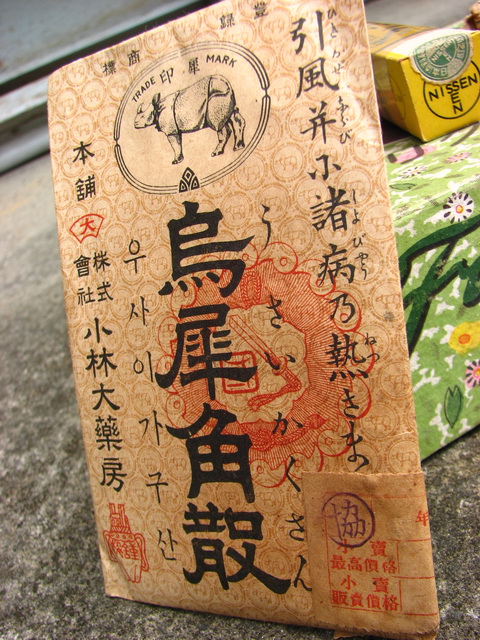 標商録登
TRADE 印犀 MARK
引風并小諸病乃熱きま
ひきかぜ
ならび
しよびやう
ねつ
うさいかくさん
烏犀角散
우사이가구산
本舗
大
株式會社
小林大藥房
協
年
小賣
最高價格
小賣
販賣價格
NISSEN
NISSEN